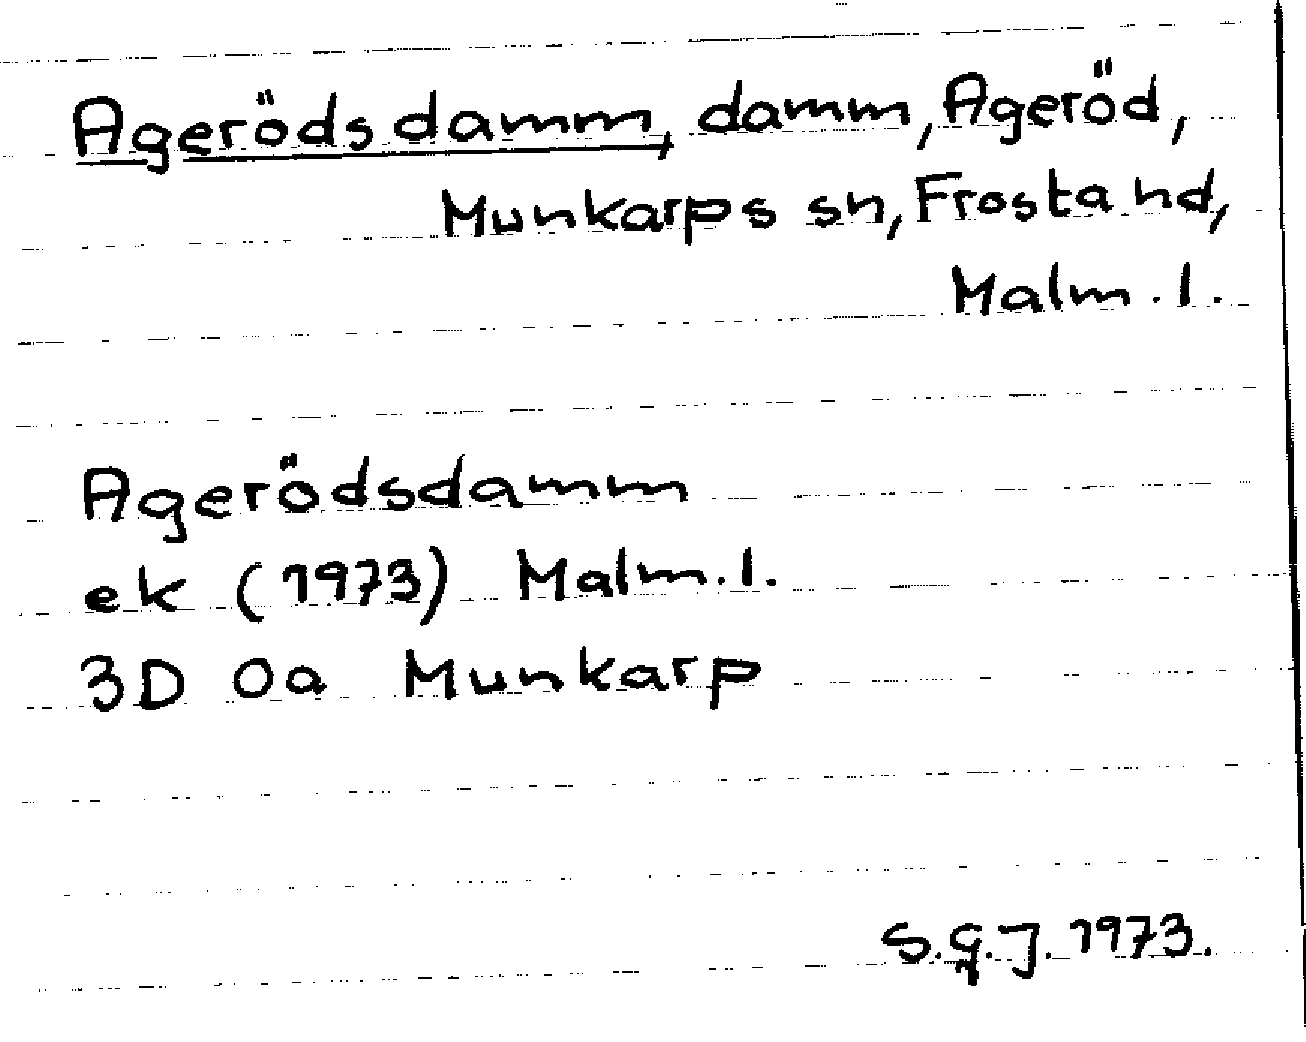 Ageröds damm, damm, Ageröd,
Munkarps sn, Frosta hd,
Malm. l.
Agerödsdamm
ek (1973) Malm. l.
3D 0a Munkarp
S.G.J. 1973.